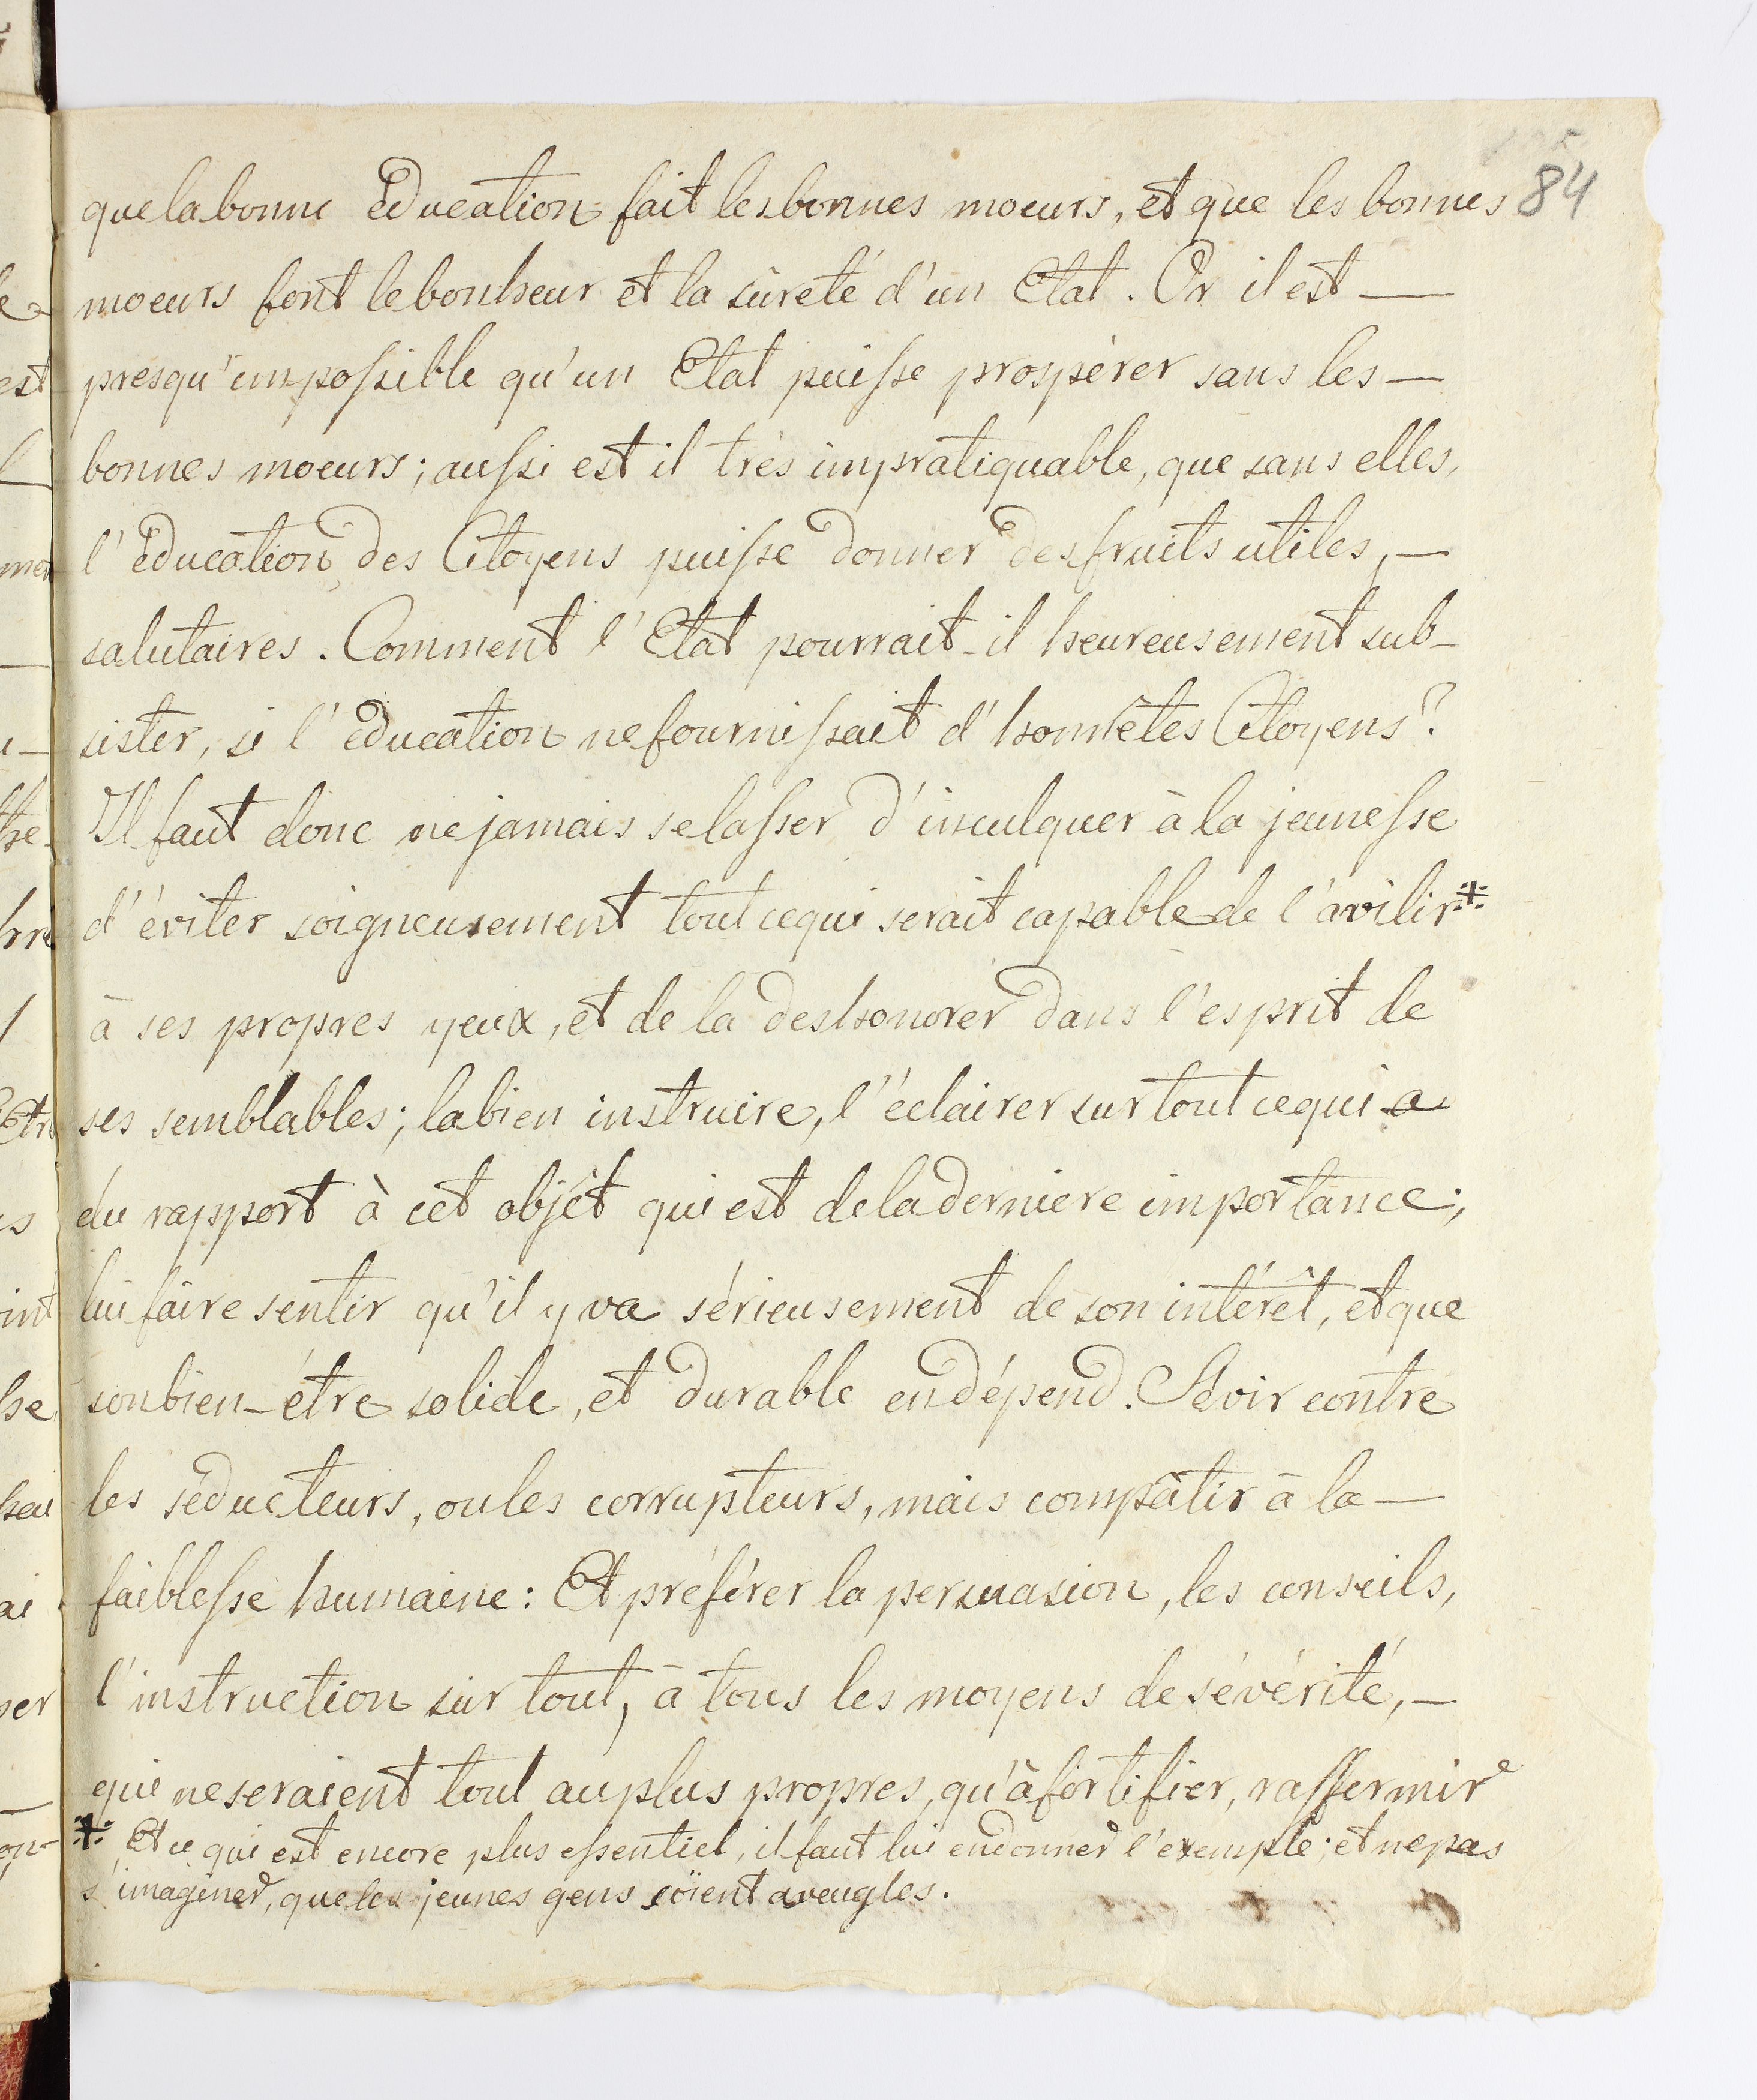 84
que la bonne éducation fait les bonnes moeurs, et que les bonnes
moeurs font le bonheur et la sûreté d'un Etat. Or il est —
presqu'impossible qu'un Etat puisse prospérer sans les —
bonnes moeurs; aussi est il très impratiquable, que sans elles,
l'éducation des Citoyens puisse donner des fruits utiles, —
salutaires. Comment l'Etat pourrait-il heureusement sub-
sister, si l'éducation ne fournissait d'honnêtes Citoyens?
Il faut donc ne jamais se lasser d'inculquer à la jeunesse
d'éviter soigneusement tout ce qui serait capable de l'avilir※
à ses propres yeux, et de la deshonorer dans l'esprit de
ses semblables; la bien instruire, l'éclairer sur tout ce qui a
du rapport à cet objét qui est de la derniere importance;
lui faire sentir qu'il y va sérieusement de son intérêt, et que
son bien-être solide, et durable en dépend. Sévir contre
les séducteurs, ou les corrupteurs, mais compâtir à la —
faiblesse humaine: Et préférer la persuasion, les conseils,
l'instruction sur tout, à tous les moyens de sévérité, —
qui ne seraient tout au plus propres, qu'à fortifier, raffermir
※ Et ce qui est encore plus essentiel, il faut lui en donner l'exemple; et ne pas
s'imaginer, que les jeunes gens soïent aveugles.